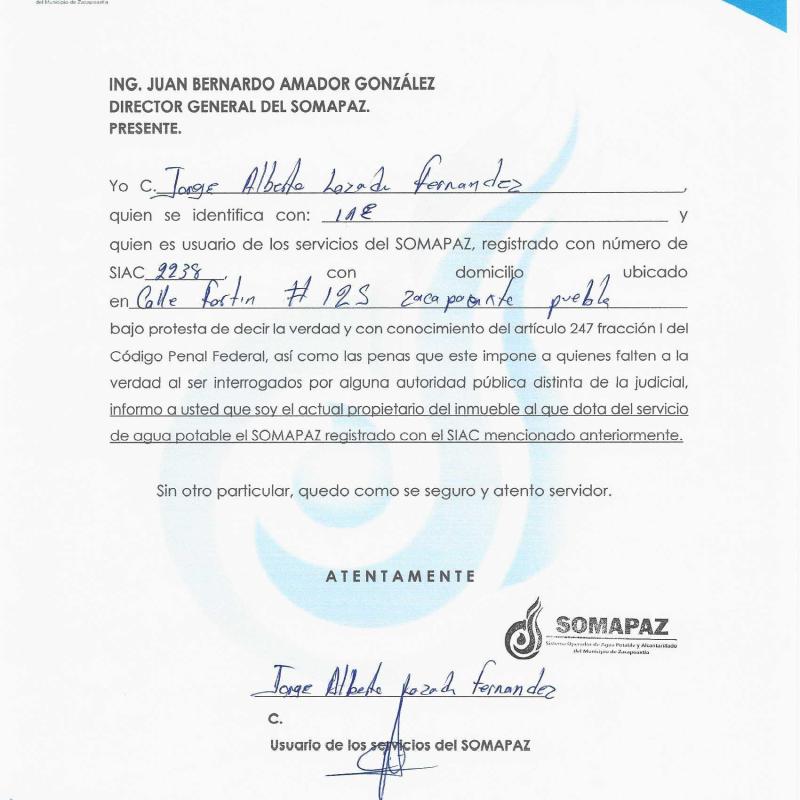 del Municipio de Zacapoaxtla
ING. JUAN BERNARDO AMADOR GONZÁLEZ
DIRECTOR GENERAL DEL SOMAPAZ.
PRESENTE.
Yo C. Jorge Alberto Lozada Fernandez,
quien se identifica con: INE y
quien es usuario de los servicios del SOMAPAZ, registrado con número de
SIAC 2238, con domicilio ubicado
en Calle Fortin # 125 zacapoaxtla puebla
bajo protesta de decir la verdad y con conocimiento del artículo 247 fracción I del
Código Penal Federal, así como las penas que este impone a quienes falten a la
verdad al ser interrogados por alguna autoridad pública distinta de la judicial,
informo a usted que soy el actual propietario del inmueble al que dota del servicio
de agua potable el SOMAPAZ registrado con el SIAC mencionado anteriormente.
Sin otro particular, quedo como se seguro y atento servidor.
ATENTAMENTE
SOMAPAZ
Sistema Operador de Agua Potable y Alcantarillado
del Municipio de Zacapoaxtla
Jorge Alberto Lozada Fernandez
C.
Usuario de los servicios del SOMAPAZ